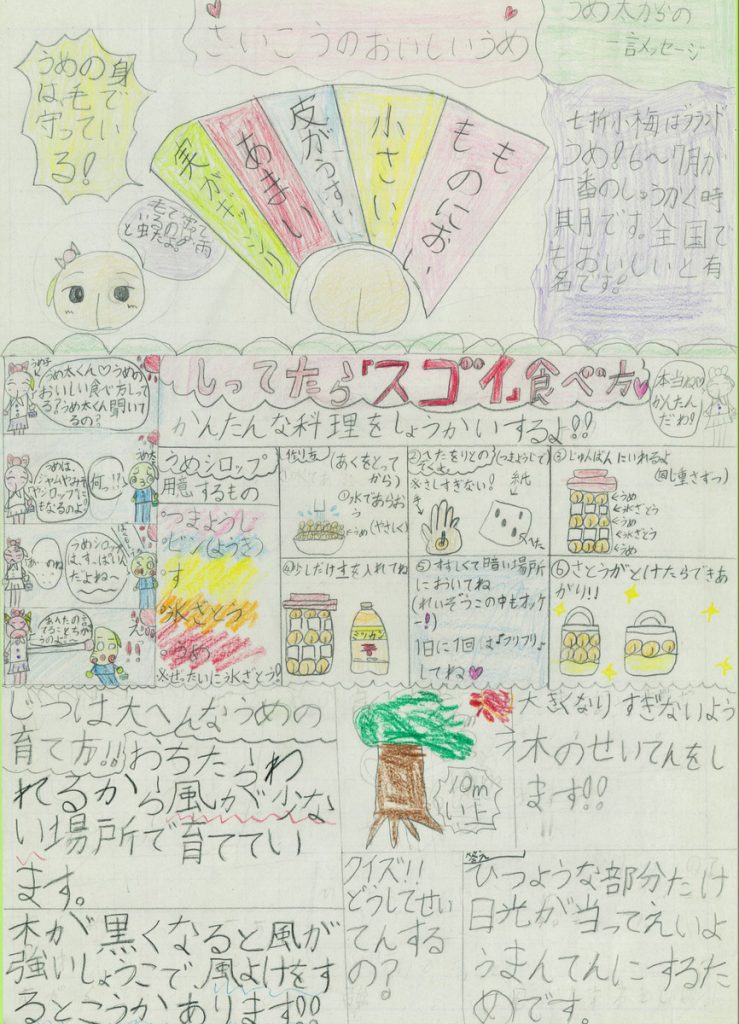 さいこうのおいしいうめ
うめ太からの
一言メッセージ
うめの身
は毛で
守ってい
る！
毛で守って
いるのは雨
と虫だよ。
実がギッシリ
あまい
皮がうすい
小さい
ものにおい
七折小梅はブランド
うめ！6〜7月が
一番のしゅうかく時
期です。全国で
もおいしいと有
名です！
しってたら「スゴイ」食べ方
かんたんな料理をしょうかいするよ!!
本当ね♡
かんたん
だわ！
うめ子
うめ太くん♡うめの
おいしい食べ方しって
る？うめ太くん聞いて
るの？
うめは、
ジャムやみそ
やシロップに
もなるのよ♪
何っ!!
うめシロップ
は、すっぱいん
だよね〜
うめシロップ
用意するもの
つまようじ
ビン(ようき)
す
氷ざとう
うめ
※ぜったいに氷ざとう!
作り方
(あくをとって
から)
①水であらお
う
(やさしく)
←うめ
②へたをとりのぞくよ
(つまようじで)
※さしすぎない！
紙
へた
③じゅんばんにいれるよ
(回し重さずっ)
←うめ
←氷ざとう
←うめ
←氷ざとう
←うめ
④少しだけすを入れてね
ミツカン
⑤すずしくて暗い場所
においてね
(れいぞうこの中もオッケ
ー!)
1日に1回は♪フリフリ♪
してね♥
⑥さとうがとけたらできあ
がり!!
じつは大へんなうめの
育て方!!おちたらわ
れるから風が少な
い場所で育ててい
ます。
木が黒くなると風が
強いしょうこで風よけをす
るところがあります!!
10m
い上
大きくなりすぎないよう
う木のせいてんをし
ます!!
クイズ!!
どうしてせい
てんする
の？
答え
ひつような部分だけ
日光が当ってえいよ
うまんてんにするた
めです。